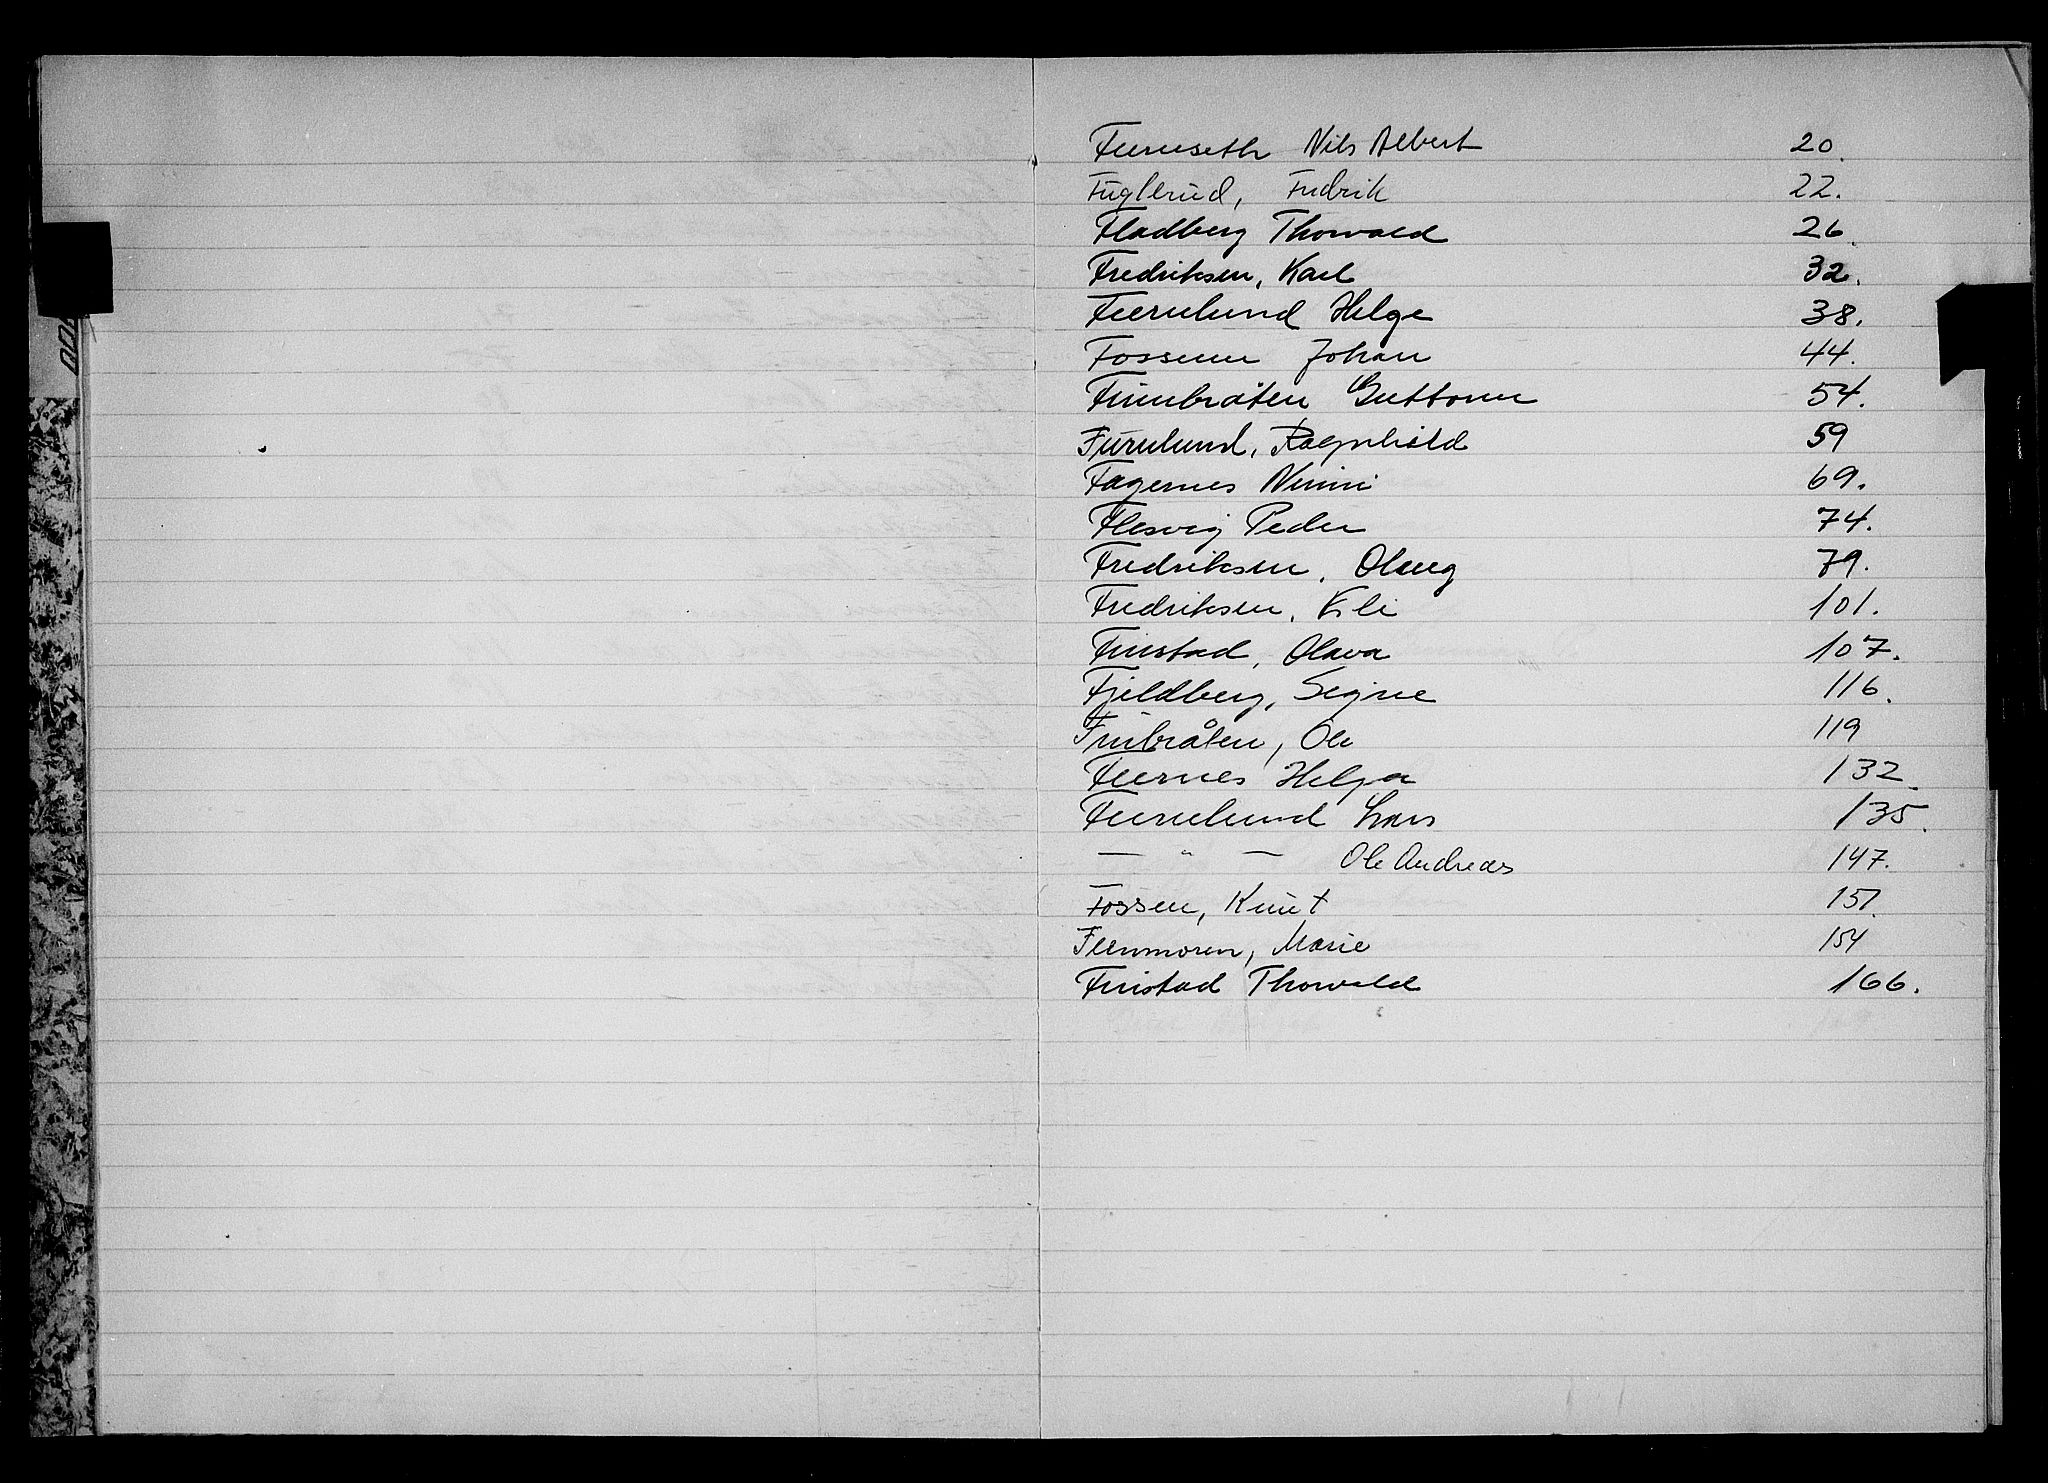 Furuseth Nils Albert 20.
Fuglerud, Fredrik 22.
Fladberg Thorvald 26.
Fredriksen, Karl 32.
Furulund Helge 38.
Fossum Johan 44.
Finnbråten Guttorm 54.
Furulund, Ragnhild 59
Fagernes Nimi 69.
Flesvig Peder 74.
Fredriksen, Olaug 79.
Fredriksen, Kli 101.
Finstad, Olava 107.
Fjeldberg, Signe 116.
Finbråten, Ole 119
Furnes Helga 132.
Furulund Lars 135.
— " — Ole Andreas 147.
Fossen, Knut 151.
Marie 154
Finstad Thorvald 166.